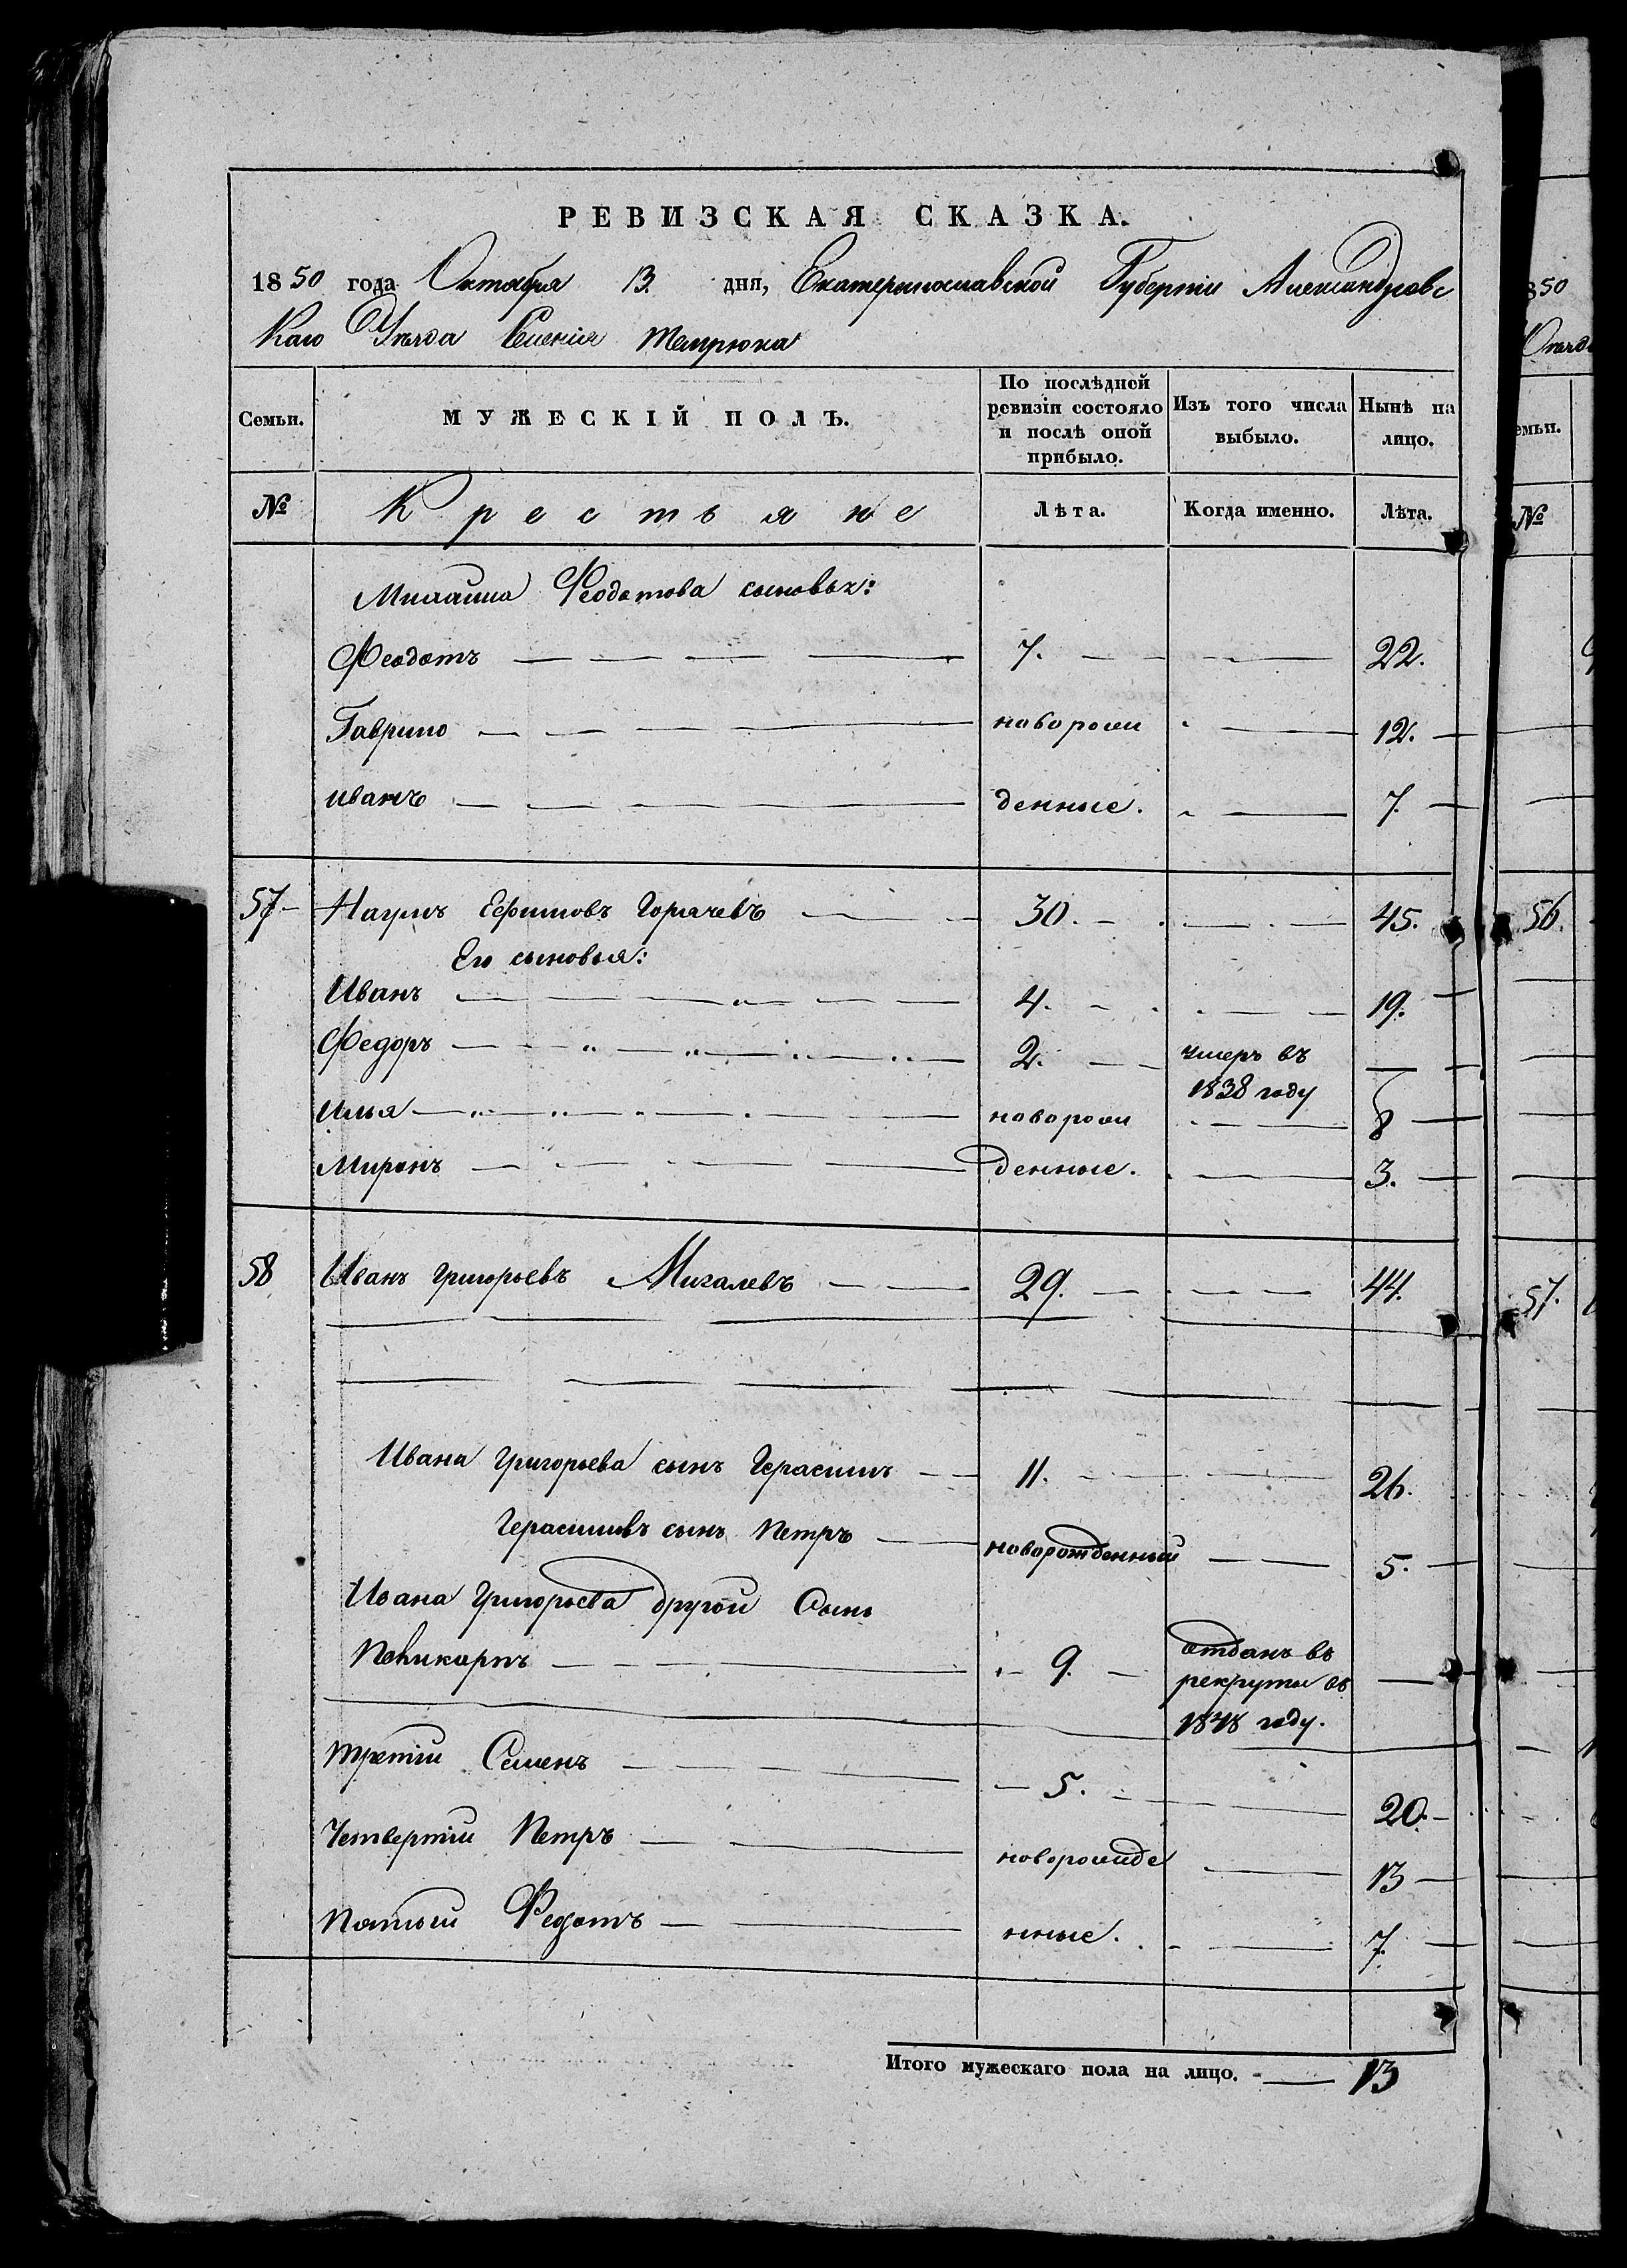 РЕВИЗСКАЯ СКАЗКА.
1850 года Октября 13. дня, Екатеринославской Губерніи Александровс
каго Уѣзда Селенія Темрюка
Семьи.
МУЖЕСКІЙ ПОЛЪ.
По послѣдней
ревизіи состояло
и послѣ оной
прибыло.
Изъ того числа
выбыло.
Нынѣ на
лицо.
№
Крестьяне
Лѣта.
Когда именно.
Лѣта.
Михаила Феодотова сыновья:
Феодотъ 7. 22.
Гаврило новорож 12.
Иванъ денные. 7.
57 Наумъ Ефимовъ Горячевъ 30. 45.
Его сыновья:
Иванъ 4. 19.
Федоръ 2. умеръ въ
1838 году
Илья новорож 8
Миронъ денные. 3.
58 Иванъ Григорьевъ Мигалевъ 29. 44.
Ивана Григорьева сынъ Герасимъ 11. 26.
Герасимовъ сынъ Петръ новорожденный 5.
Ивана Григорьева другой Сынъ
Поликарпъ 9. отданъ въ
рекруты въ
1848 году.
Третій Семенъ 5. 20.
Четвертій Петръ новорожде 13
Пятый Федотъ нные. 7.
Итого мужескаго пола на лицо. 13
850
Уѣзд
емьи.
№
56.
57.